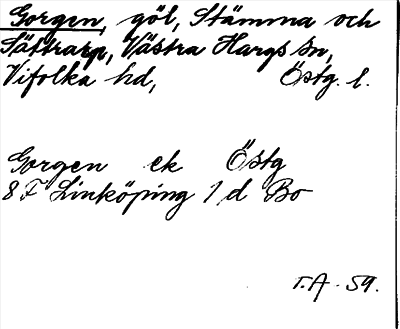 Gorgen, göl, Stämma och
Sättrarp, Västra Hargs sn,
Vifolka hd, Östg. l.
Gorgen ek Östg
8 F Linköping 1 d Bo
T.A. 59.